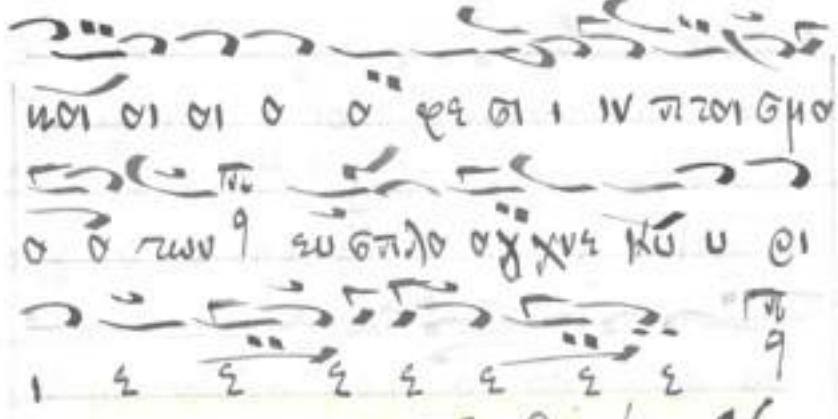 και αι αι α α φε σι ι ιν πται σμα
α α των ευ σπλα αγ χνε Κυ υ ρι
ι ε ε ε ε ε ε ε